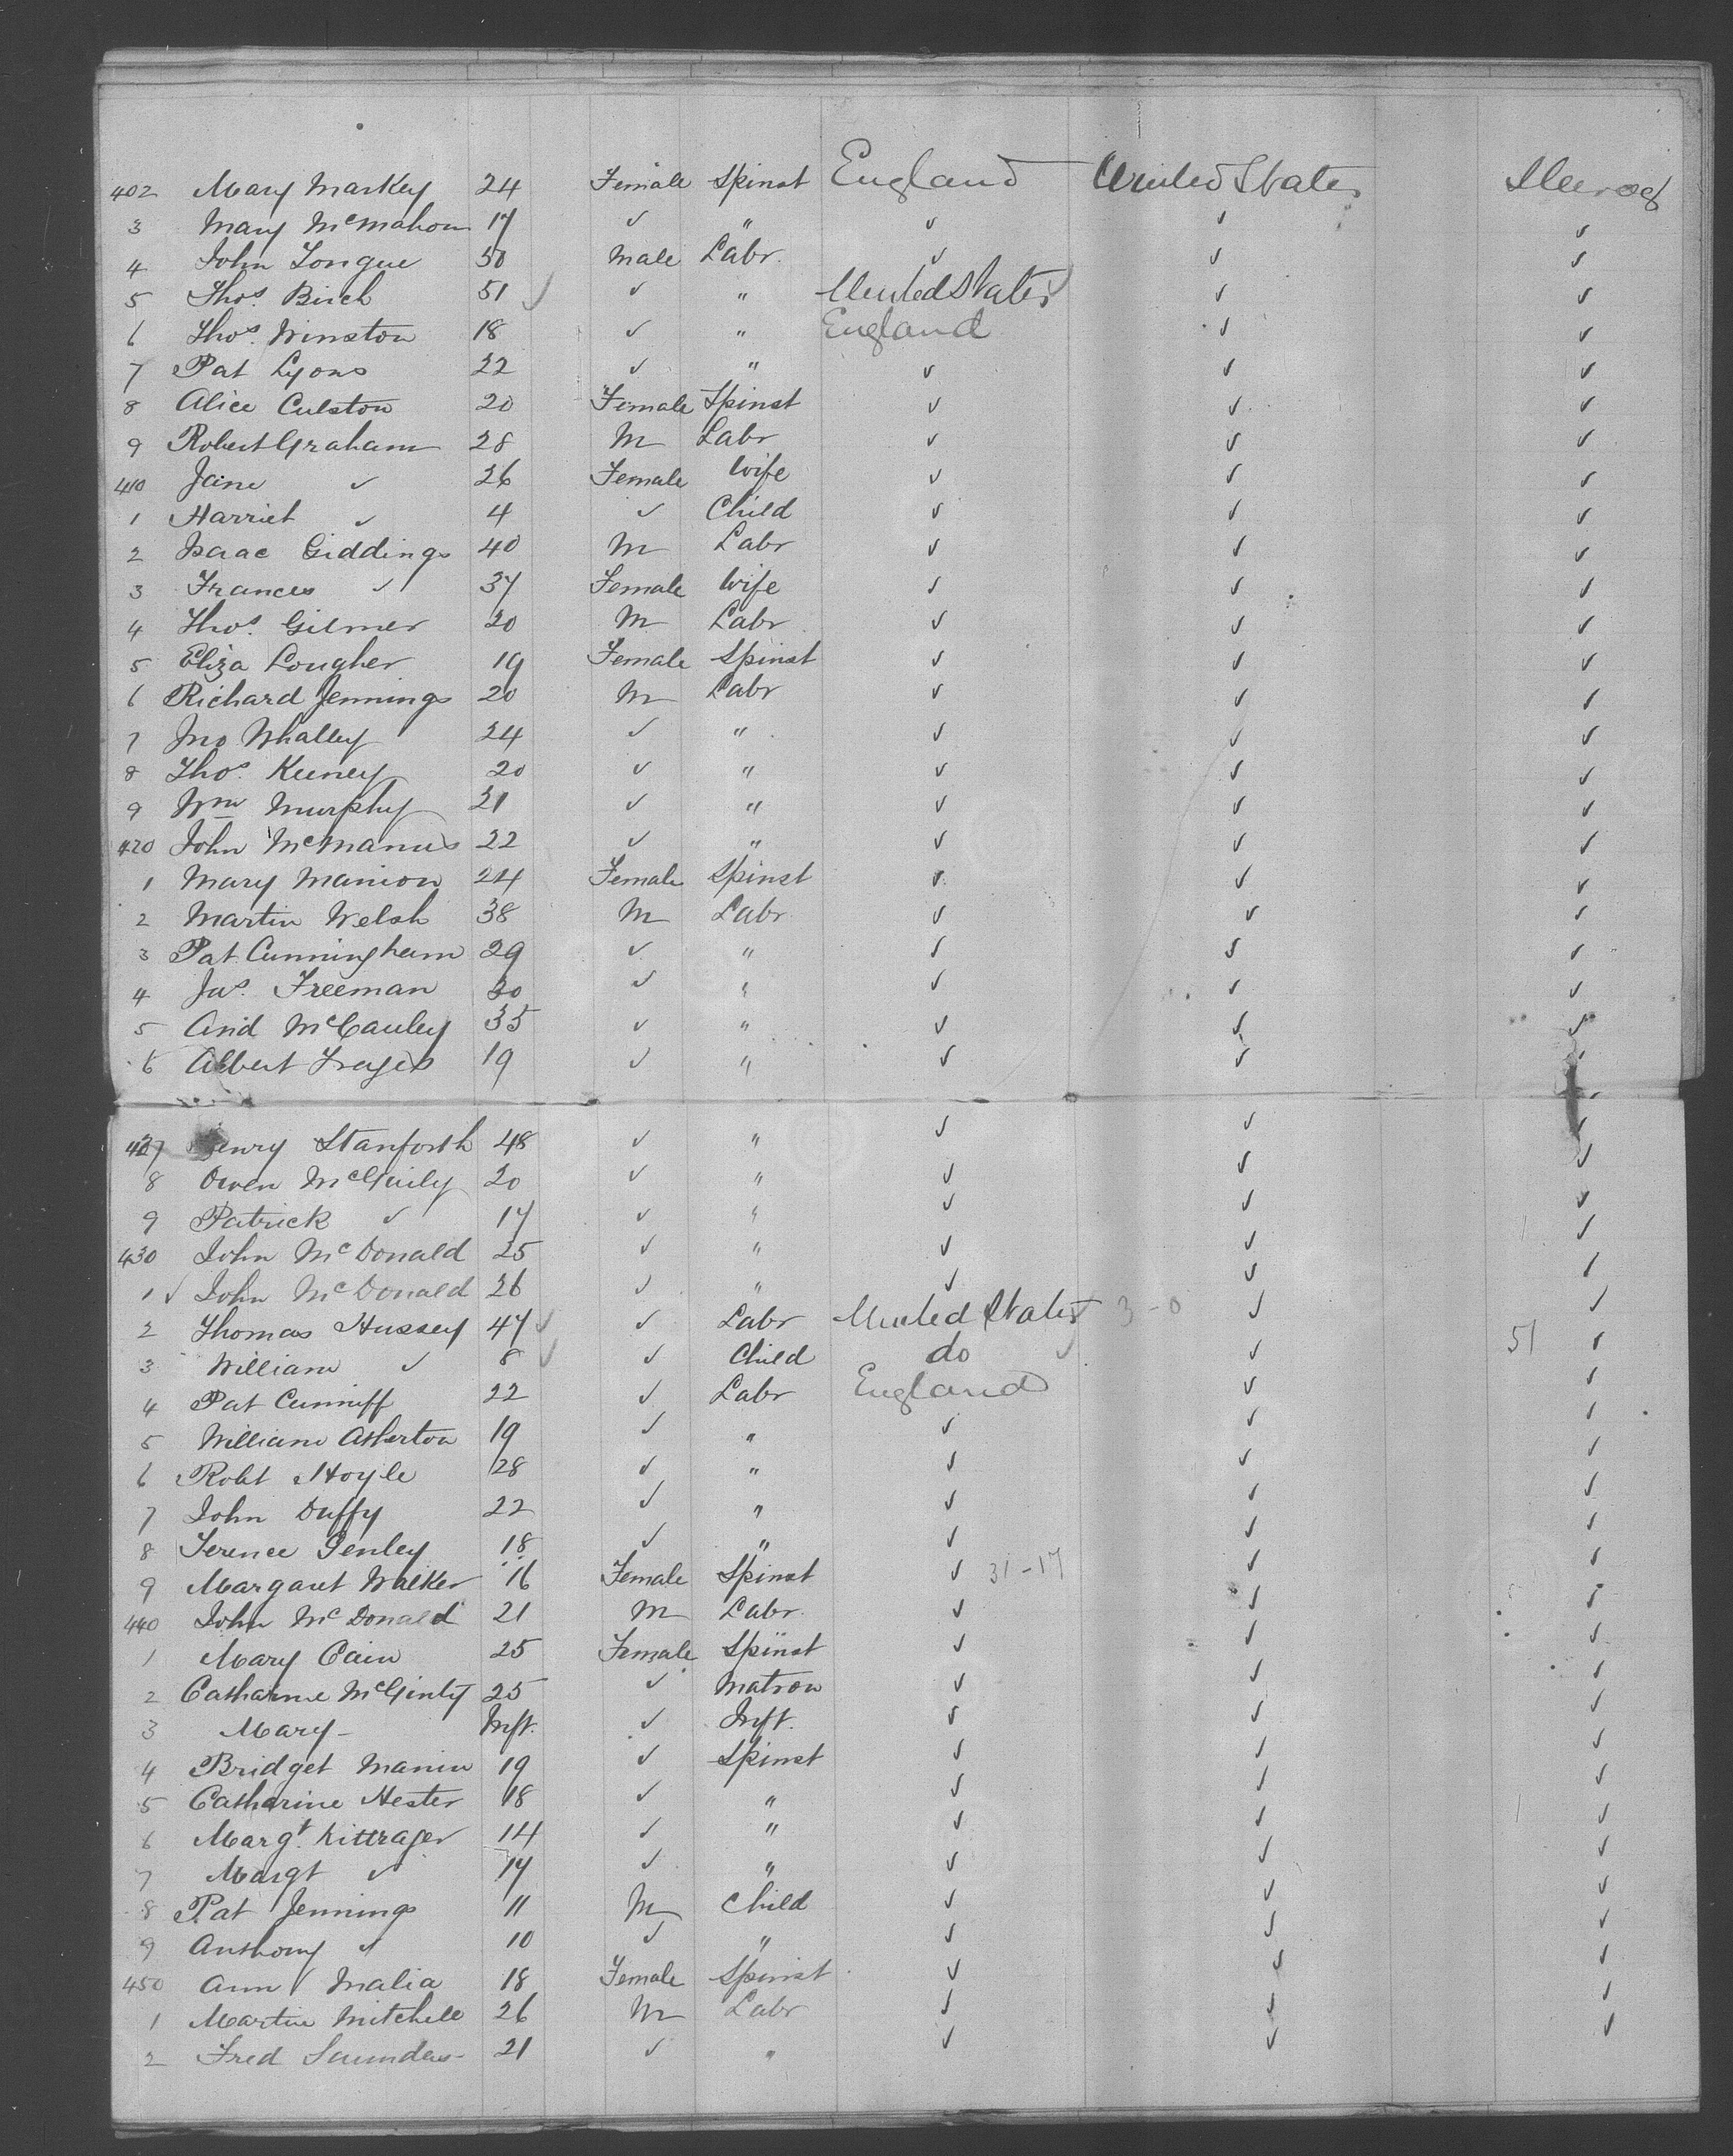 402 Mary Markey 24 Female Spinst England United States Steerag
3 Mary McMahon 17 ✓ " ✓ ✓ ✓
4 John Tongue 30 Male Labr. ✓ ✓ ✓
5 Thos. Birch 51 ✓ ✓ " United States ✓ ✓ ✓
6 Thos. Winston 18 ✓ " England ✓ ✓
7 Pat Lyons 22 ✓ " ✓ ✓ ✓
8 Alice Culston 20 Female Spinst ✓ ✓ ✓
9 Robert Graham 28 M Labr ✓ ✓ ✓
410 Jane ✓ 26 Female Wife ✓ ✓ ✓
1 Harriet ✓ 4 ✓ Child ✓ ✓ ✓
2 Isaac Giddings 40 M Labr ✓ ✓ ✓
3 Frances ✓ 37 Female Wife ✓ ✓ ✓
4 Thos. Gilmer 20 M Labr ✓ ✓ ✓
5 Eliza Lougher 19 Female Spinst ✓ ✓ ✓
6 Richard Jennings 20 M Labr ✓ ✓ ✓
7 Jno Whalley 24 ✓ " ✓ ✓ ✓
8 Thos. Keeney 20 ✓ " ✓ ✓ ✓
9 Wm Murphy 21 ✓ " ✓ ✓ ✓
420 John McManus 22 ✓ " ✓ ✓ ✓
1 Mary Manion 24 Female Spinst ✓ ✓ ✓
2 Martin Welsh 38 M Labr ✓ ✓ ✓
3 Pat Cunningham 29 ✓ " ✓ ✓ ✓
4 Jas. Freeman 30 ✓ " ✓ ✓ ✓
5 And McCauley 35 ✓ " ✓ ✓ ✓
6 Albert 19 ✓ " ✓ ✓ ✓
427 Henry Stanforth 48 ✓ " ✓ ✓ ✓
8 Owen 20 ✓ " ✓ ✓ ✓
9 Patrick ✓ 17 ✓ " ✓ ✓ ✓
430 John McDonald 25 ✓ " ✓ ✓ ✓
1 ✓ John McDonald 26 ✓ " ✓ ✓ ✓
2 Thomas Hussey 47 ✓ ✓ Labr United States 3-0 ✓ ✓
3 William ✓ 8 ✓ ✓ Child do ✓ ✓ 51 ✓
4 Pat Cunniff 22 ✓ Labr England ✓ ✓
5 William Atherton 19 ✓ " ✓ ✓ ✓
6 Robt Hoyle 28 ✓ " ✓ ✓ ✓
7 John Duffy 22 ✓ " ✓ ✓ ✓
8 Terence Genley 18 ✓ " ✓ ✓ ✓
9 Margaret Walker 16 Female Spinst ✓ 31-17 ✓ ✓
440 John McDonald 21 M Labr. ✓ ✓ ✓
1 Mary Cain 25 Female Spinst ✓ ✓ ✓
2 Catharine McGinty 25 ✓ Matron ✓ ✓ ✓
3 Mary - Inft. ✓ Inft. ✓ ✓ ✓
4 Bridget Manin 19 ✓ Spinst ✓ ✓ ✓
5 Catharine Hester 18 ✓ " ✓ ✓ ✓
6 Margt. Kittrager 14 ✓ " ✓ ✓ ✓
7 Margt ✓ 17 ✓ " ✓ ✓ ✓
8 Pat Jennings 11 M Child ✓ ✓ ✓
9 Anthony ✓ 10 ✓ " ✓ ✓ ✓
450 Ann Malia 18 Female Spinst ✓ ✓ ✓
1 Martin Mitchell 26 M Labr ✓ ✓ ✓
2 Fred Saunders 21 ✓ " ✓ ✓ ✓